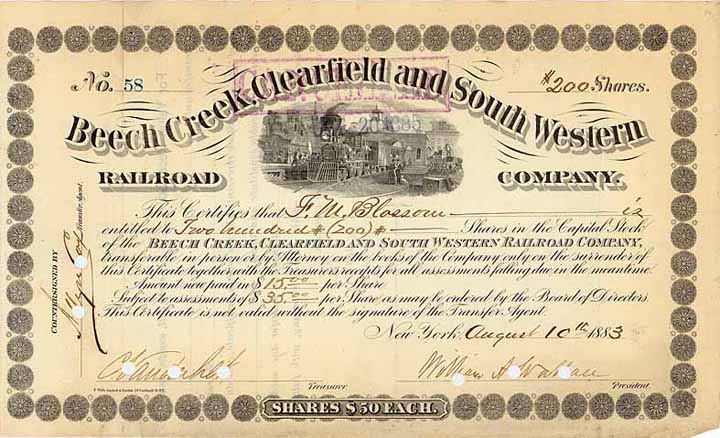 No. 58
$200 Shares.
Beech Creek, Clearfield and South Western
RAILROAD COMPANY.
This Certifies that F. M. Blossom is
entitled to Two hundred # (200) # Shares in the Capital Stock
of the BEECH CREEK, CLEARFIELD AND SOUTH WESTERN RAILROAD COMPANY,
transferable in person or by Attorney on the books of the Company only on the surrender of
this Certificate together with the Treasurers receipts for all assessments falling due in the meantime.
Amount now paid in $15.00 per Share
Subject to assessments of $35.00 per Share as may be ordered by the Board of Directors.
This Certificate is not valid without the signature of the Transfer Agent.
New York, August 10th 1883.
COUNTERSIGNED BY
Transfer Agent.
William H
Treasurer.
President.
SHARES $50 EACH.